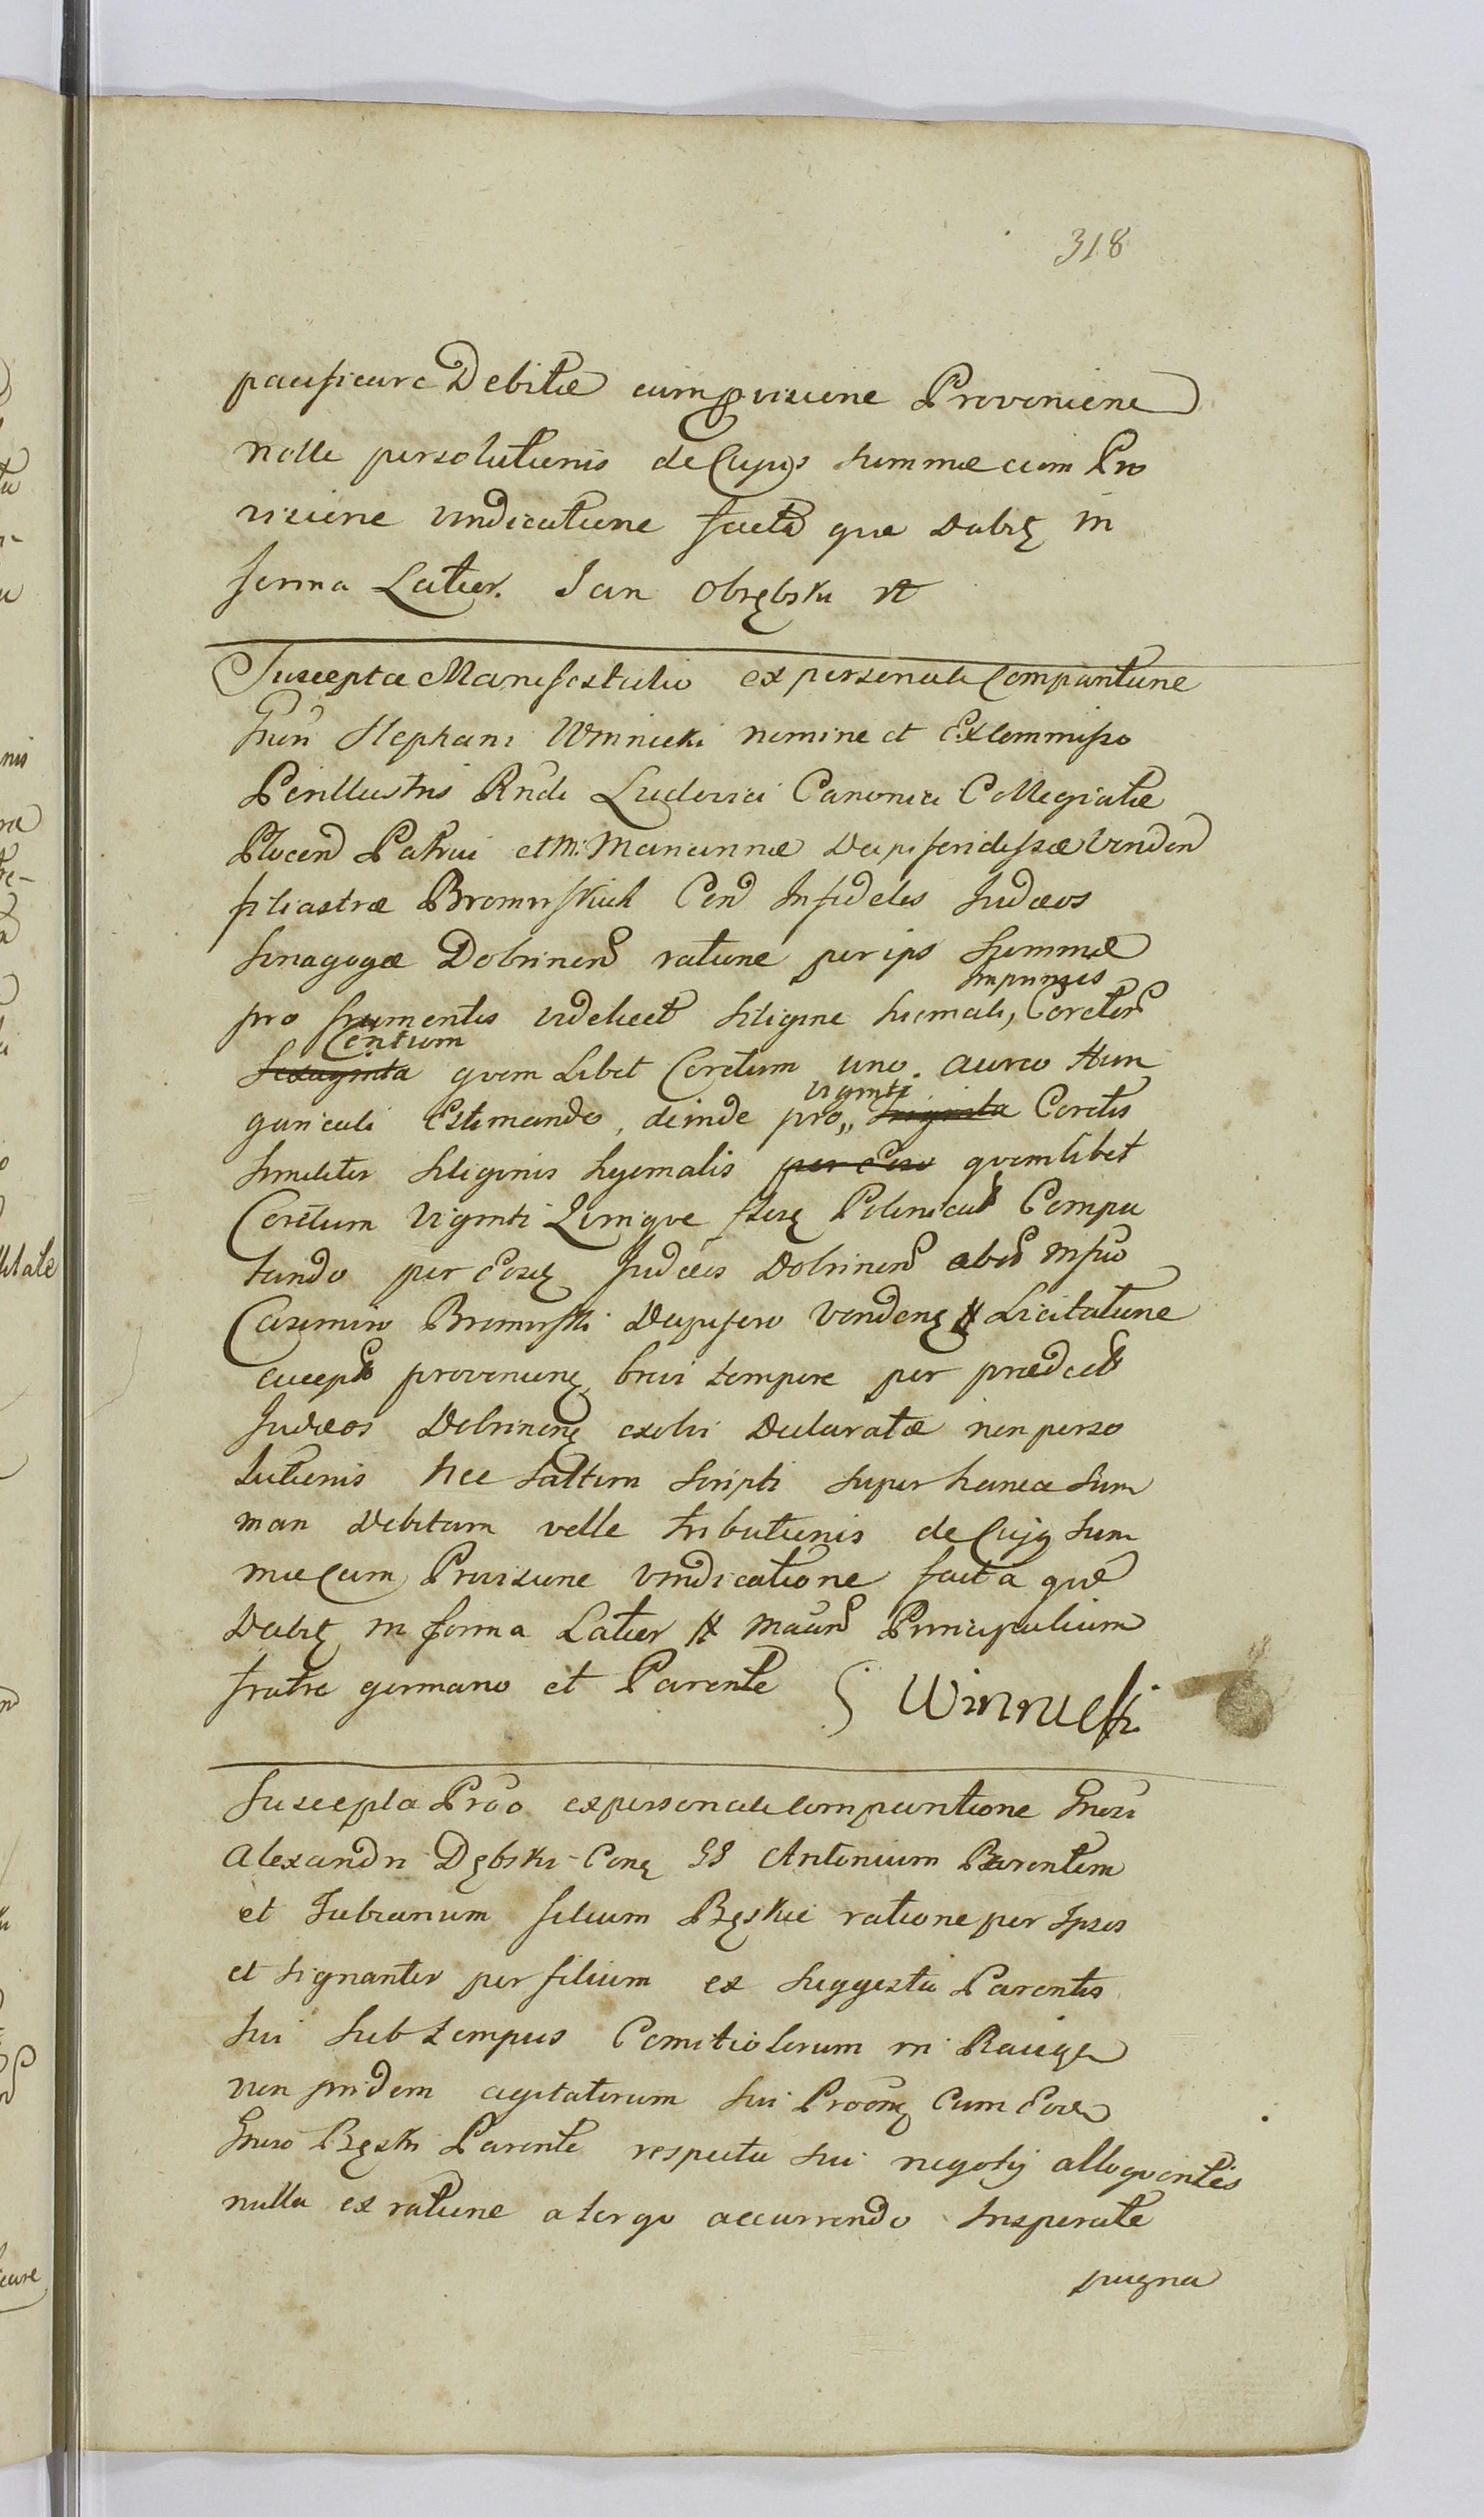 318
pacificare Debitæ cum provisione Provenien
nolle persolutionis de Cujus summæ cum Pro
visione vindicatione facta quæ Dabit in
forma Latior. Jan Obrębski
Suscepta Manifestatio ex personali Comparitione
Gnri Stephani Winnicki nomine et Ex Commisso
Perillustris Rndi Ludovici Canonici Collegiatæ
Plocen Patrui et M: Mariannæ Dapiferidissæ Venden
filiastræ Bromirskich Con Infideles Judæos
Sinagogæ Dobrinen ratione per ips Summæ
imprimis
pro frumentis videlicet siligine hiemali, Coretis
Centum
Sexaginta quem Libet Coretum uno aureo Hun
viginti
garicali Estimando, deinde pro,, triginta Coretis
similiter siliginis hyemalis per Eos quemlibet
Coretum viginti Quinque flor Polonical Compu
tando per Eosq Judæos Dobrinen ab Mfico
Casimiro Bromirski Dapifero Venden Licitatione
accept provenien brevi tempore per prædict
Judæos Dobrinen exolvi Declaratæ non perso
lutionis Nec saltim scripti super hance Sum
mam Debitam velle tributionis de Cujq Sum
mæ Cum Provisione vindicatione facta quæ
Dabit in forma Latior Principalium
fratre germano et Parente S Winnicki
Suscepta Prõo ex personali comparitione Gnosi
Alexandri Dębski Con GG Antonium Parentem
et Fabianum filium Bęskie ratione per Ipsos
et signanter per filium ex suggestu Parentis
sui sub tempus Comitiolorum in Raciąż
non pridem agitatorum sui Cum Eod
Gnoso Bęski Parente respectu sui negotij alloquentis
nulla ex ratione a tergo accurrendo Insperate
pugna